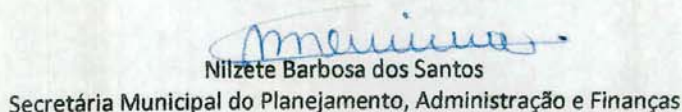 Nilzete Barbosa dos Santos
Secretária Municipal do Planejamento, Administração e Finanças